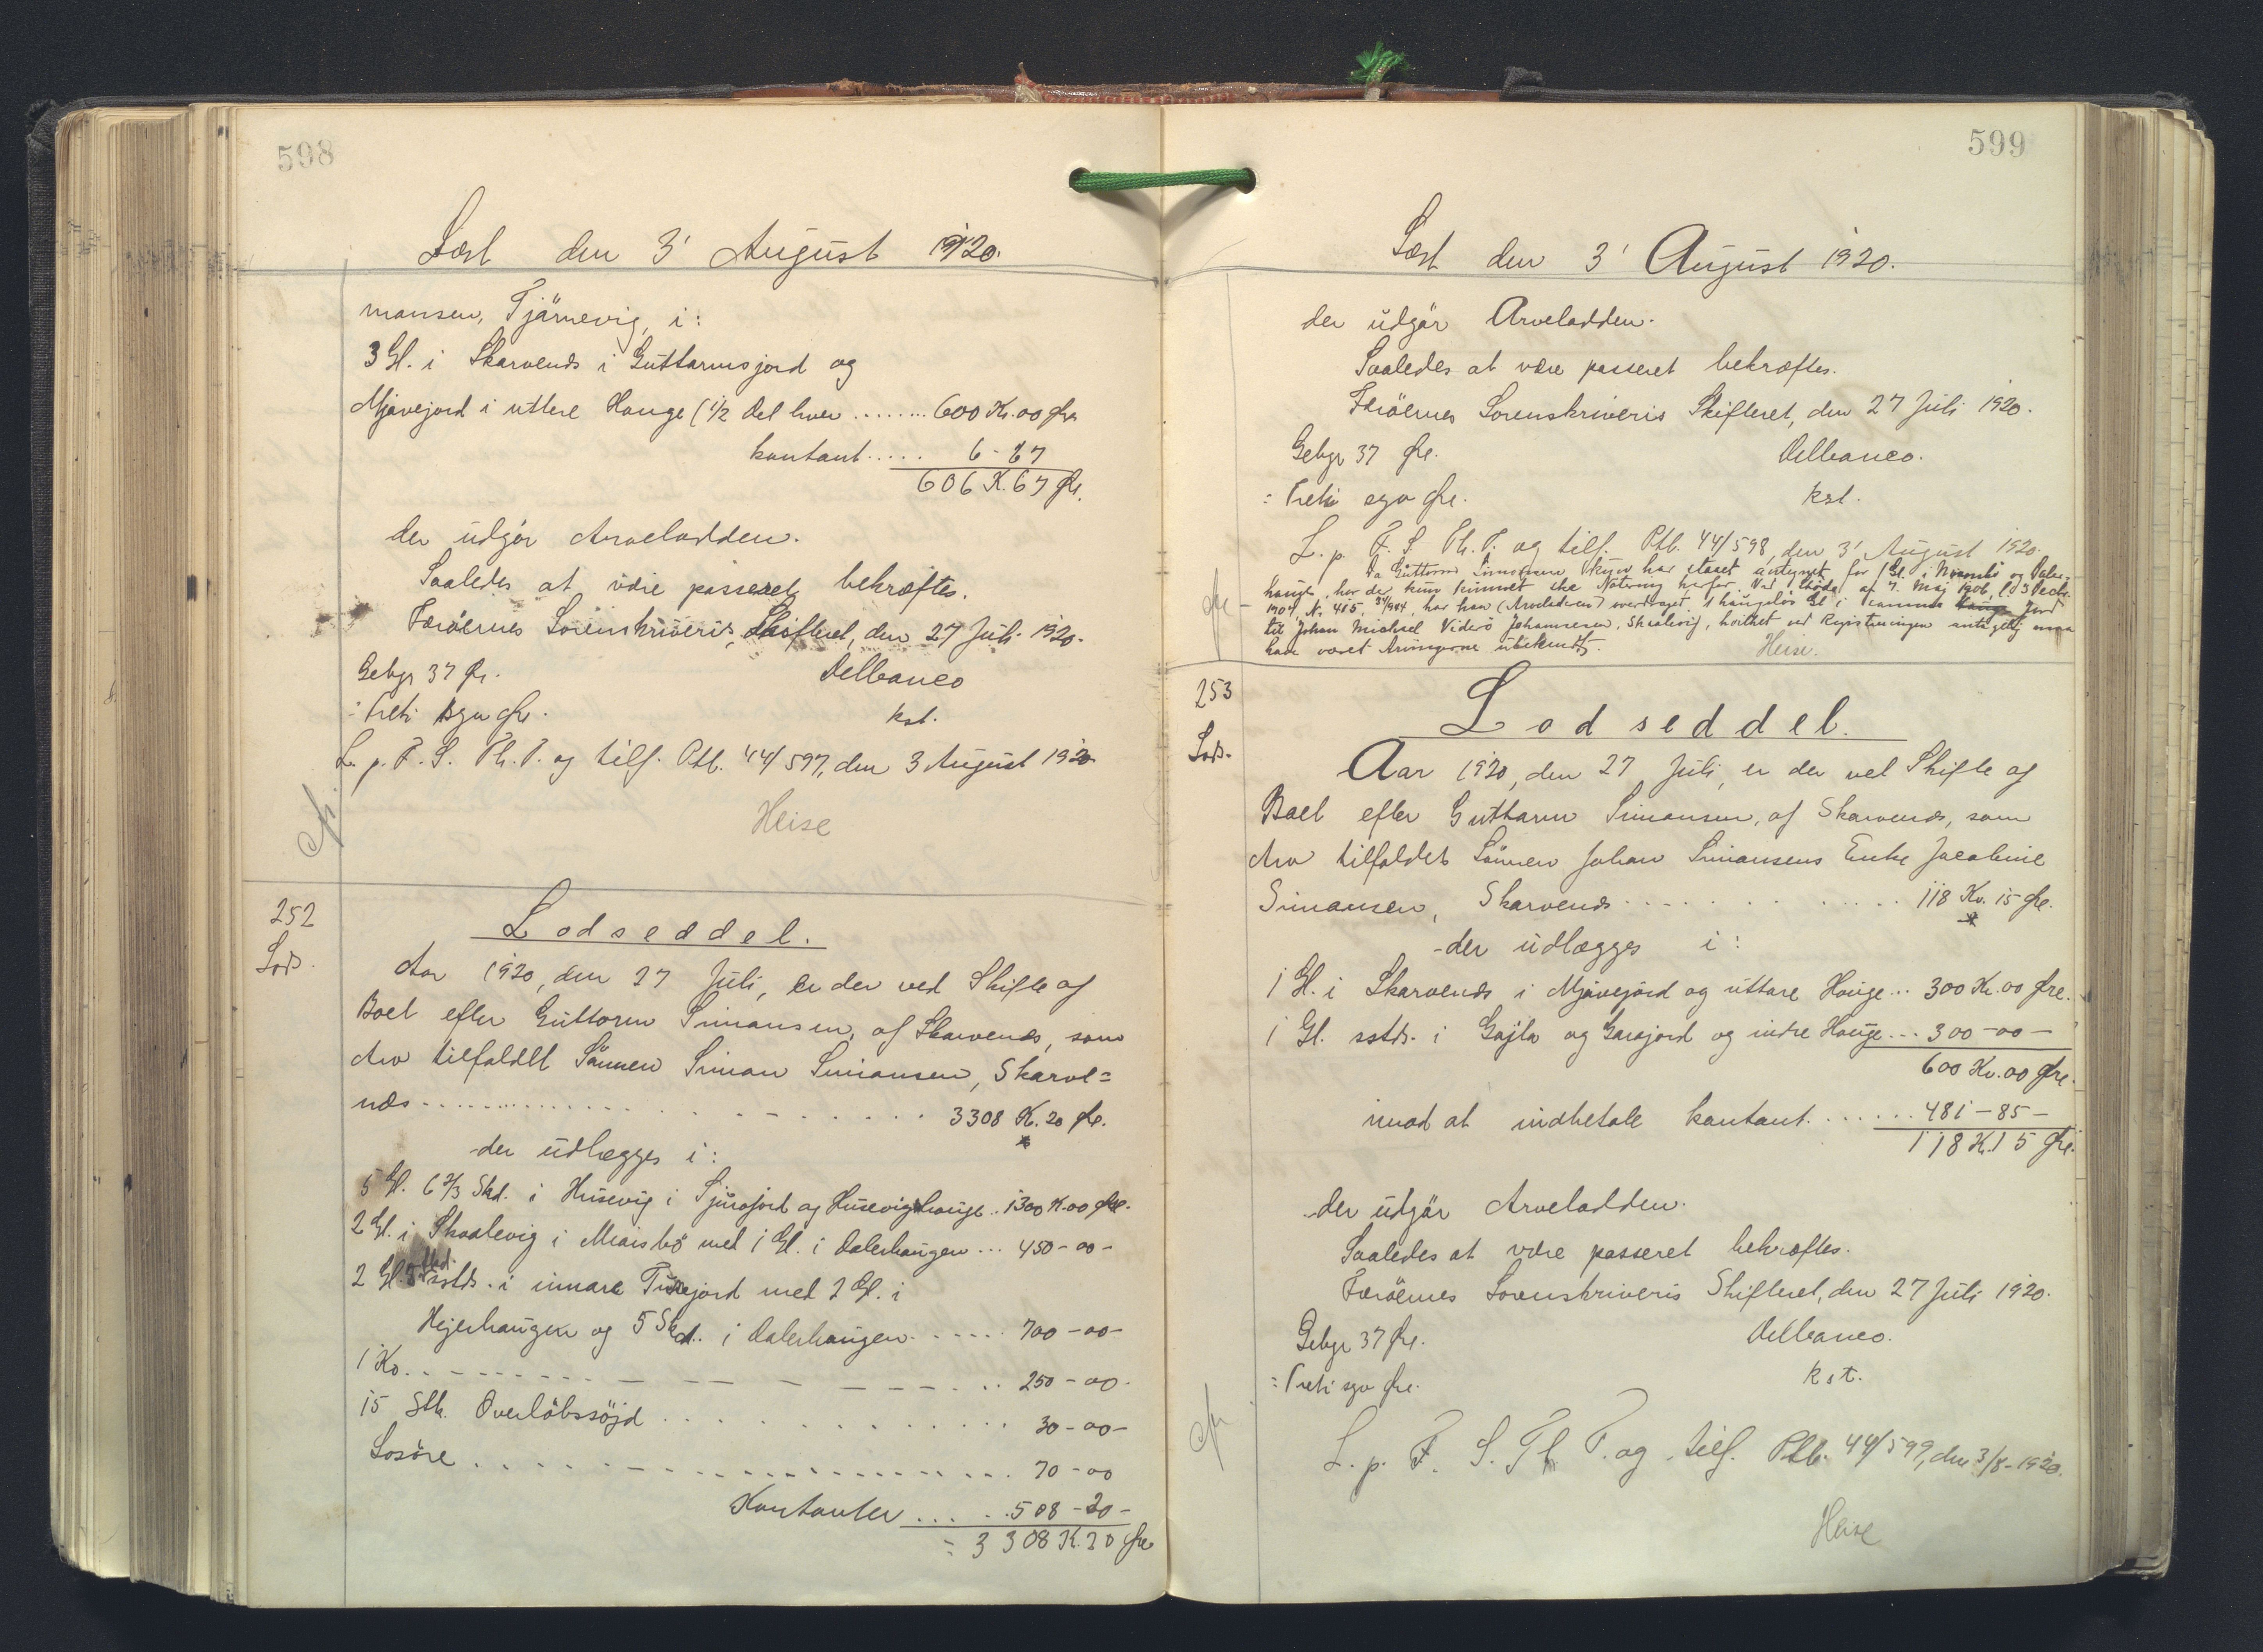 598
Læst den 3' August 1920.
mansen, Tjörnevig, i:
3 Gl. i Skarvenæs i Guttormsjord og
Mjåvejord i uttere Hauge (1/2 Del hver ........ 600 Kr. 00 Øre
kontant ..... 6 - 67
606 K. 67 Øre.
der udgör Arvelodden.
Saaledes at være passeret bekræftes.
Færöernes Sorenskriveris Skifteret, den 27 Juli 1920.
Gebyr 37 Øre.
Delbanco
= Treti syv Øre.
kst.
L. p. F. S. Th. T. og tilf. Ptb. 44/597, den 3 August 1920
Heise
252
Lods.
Lodseddel.
Aar 1920, den 27 Juli, er der ved Skifte af
Boet efter Guttorm Simonsen, af Skarvenæs, som
Arv tilfaldet Sönnen Simon Simonsen, Skarve=
næs ............ 3308 K. 20 Øre.
der udlægges i:
5 Gl. 6 2/3 Skd. i Husevig i Sjurajord og Husevighauge .. 1300 K. 00 Øre.
2 Gl. i Skaalevig i Miaisbö med 1 Gl. i Dalerhaugen ... 450 - 00 -
2 Gl. 5 Skd. sstds. i innare med 2 Gl. i
Hejerhaugen og 5 Skd. i Dalerhaugen ...... 700 - 00 -
1 Ko. ............ 250 - 00 -
15 Stk. Overlöbssöjd ............ 30 - 00 -
Losöre ............ 70 - 00
Kontanter ...... 508 - 20 -
= 3308 K. 20 Øre
599
Læst den 3' August 1920.
der udgör Arvelodden.
Saaledes at være passeret bekræftes.
Færöernes Sorenskriveris Skifteret, den 27 Juli 1920.
Gebyr 37 Øre.
Delbanco.
= Treti syv Øre.
kst.
L. p. F. S. Th. T. og tilf. Ptb. 44/598, den 3' August 1920.
Da Guttorm Simonsen kun har staaet antegnet for 1 Gl. i og Daler-
hauge, har der kun kunnet ske Notering herfor. Ved Skøde af 7. Maj 1906, l. 3 Sept.
1907, N. 415, har han (Arveladeren) overdraget 1 haugelös Gl. i samme Jord
til Johan Michael Viderö Johannesen, Skaalevig, hvilket ved Registreringen antagelig maa
have været Arvingerne ubekendt.
Heise.
253
Lods.
Lodseddel.
Aar 1920, den 27 Juli, er der ved Skifte af
Boet efter Guttorm Simonsen, af Skarvenæs, som
Arv tilfaldet Sönnen Johan Simonsens Enke Jacobine
Simonsen, Skarvenæs ............ 118 Kr. 15 Øre.
der udlægges i:
1 Gl. i Skarvenæs i Mjåvejord og uttare Hauge ... 300 Kr. 00 Øre.
1 Gl. sstds. i Gajla og Garajord og indre Hauge ... 300 - 00 -
600 Kr. 00 Øre.
imod at indbetale kontant ...... 481 - 85 -
118 K. 15 Øre.
der udgör Arvelodden.
Saaledes at være passeret bekræftes.
Færöernes Sorenskriveris Skifteret, den 27 Juli 1920.
Gebyr 37 Øre.
Delbanco.
= Treti syv Øre.
kst.
L. p. F. S. Th. T. og tilf. Ptb. 44/599, den 3/8 - 1920.
Heise